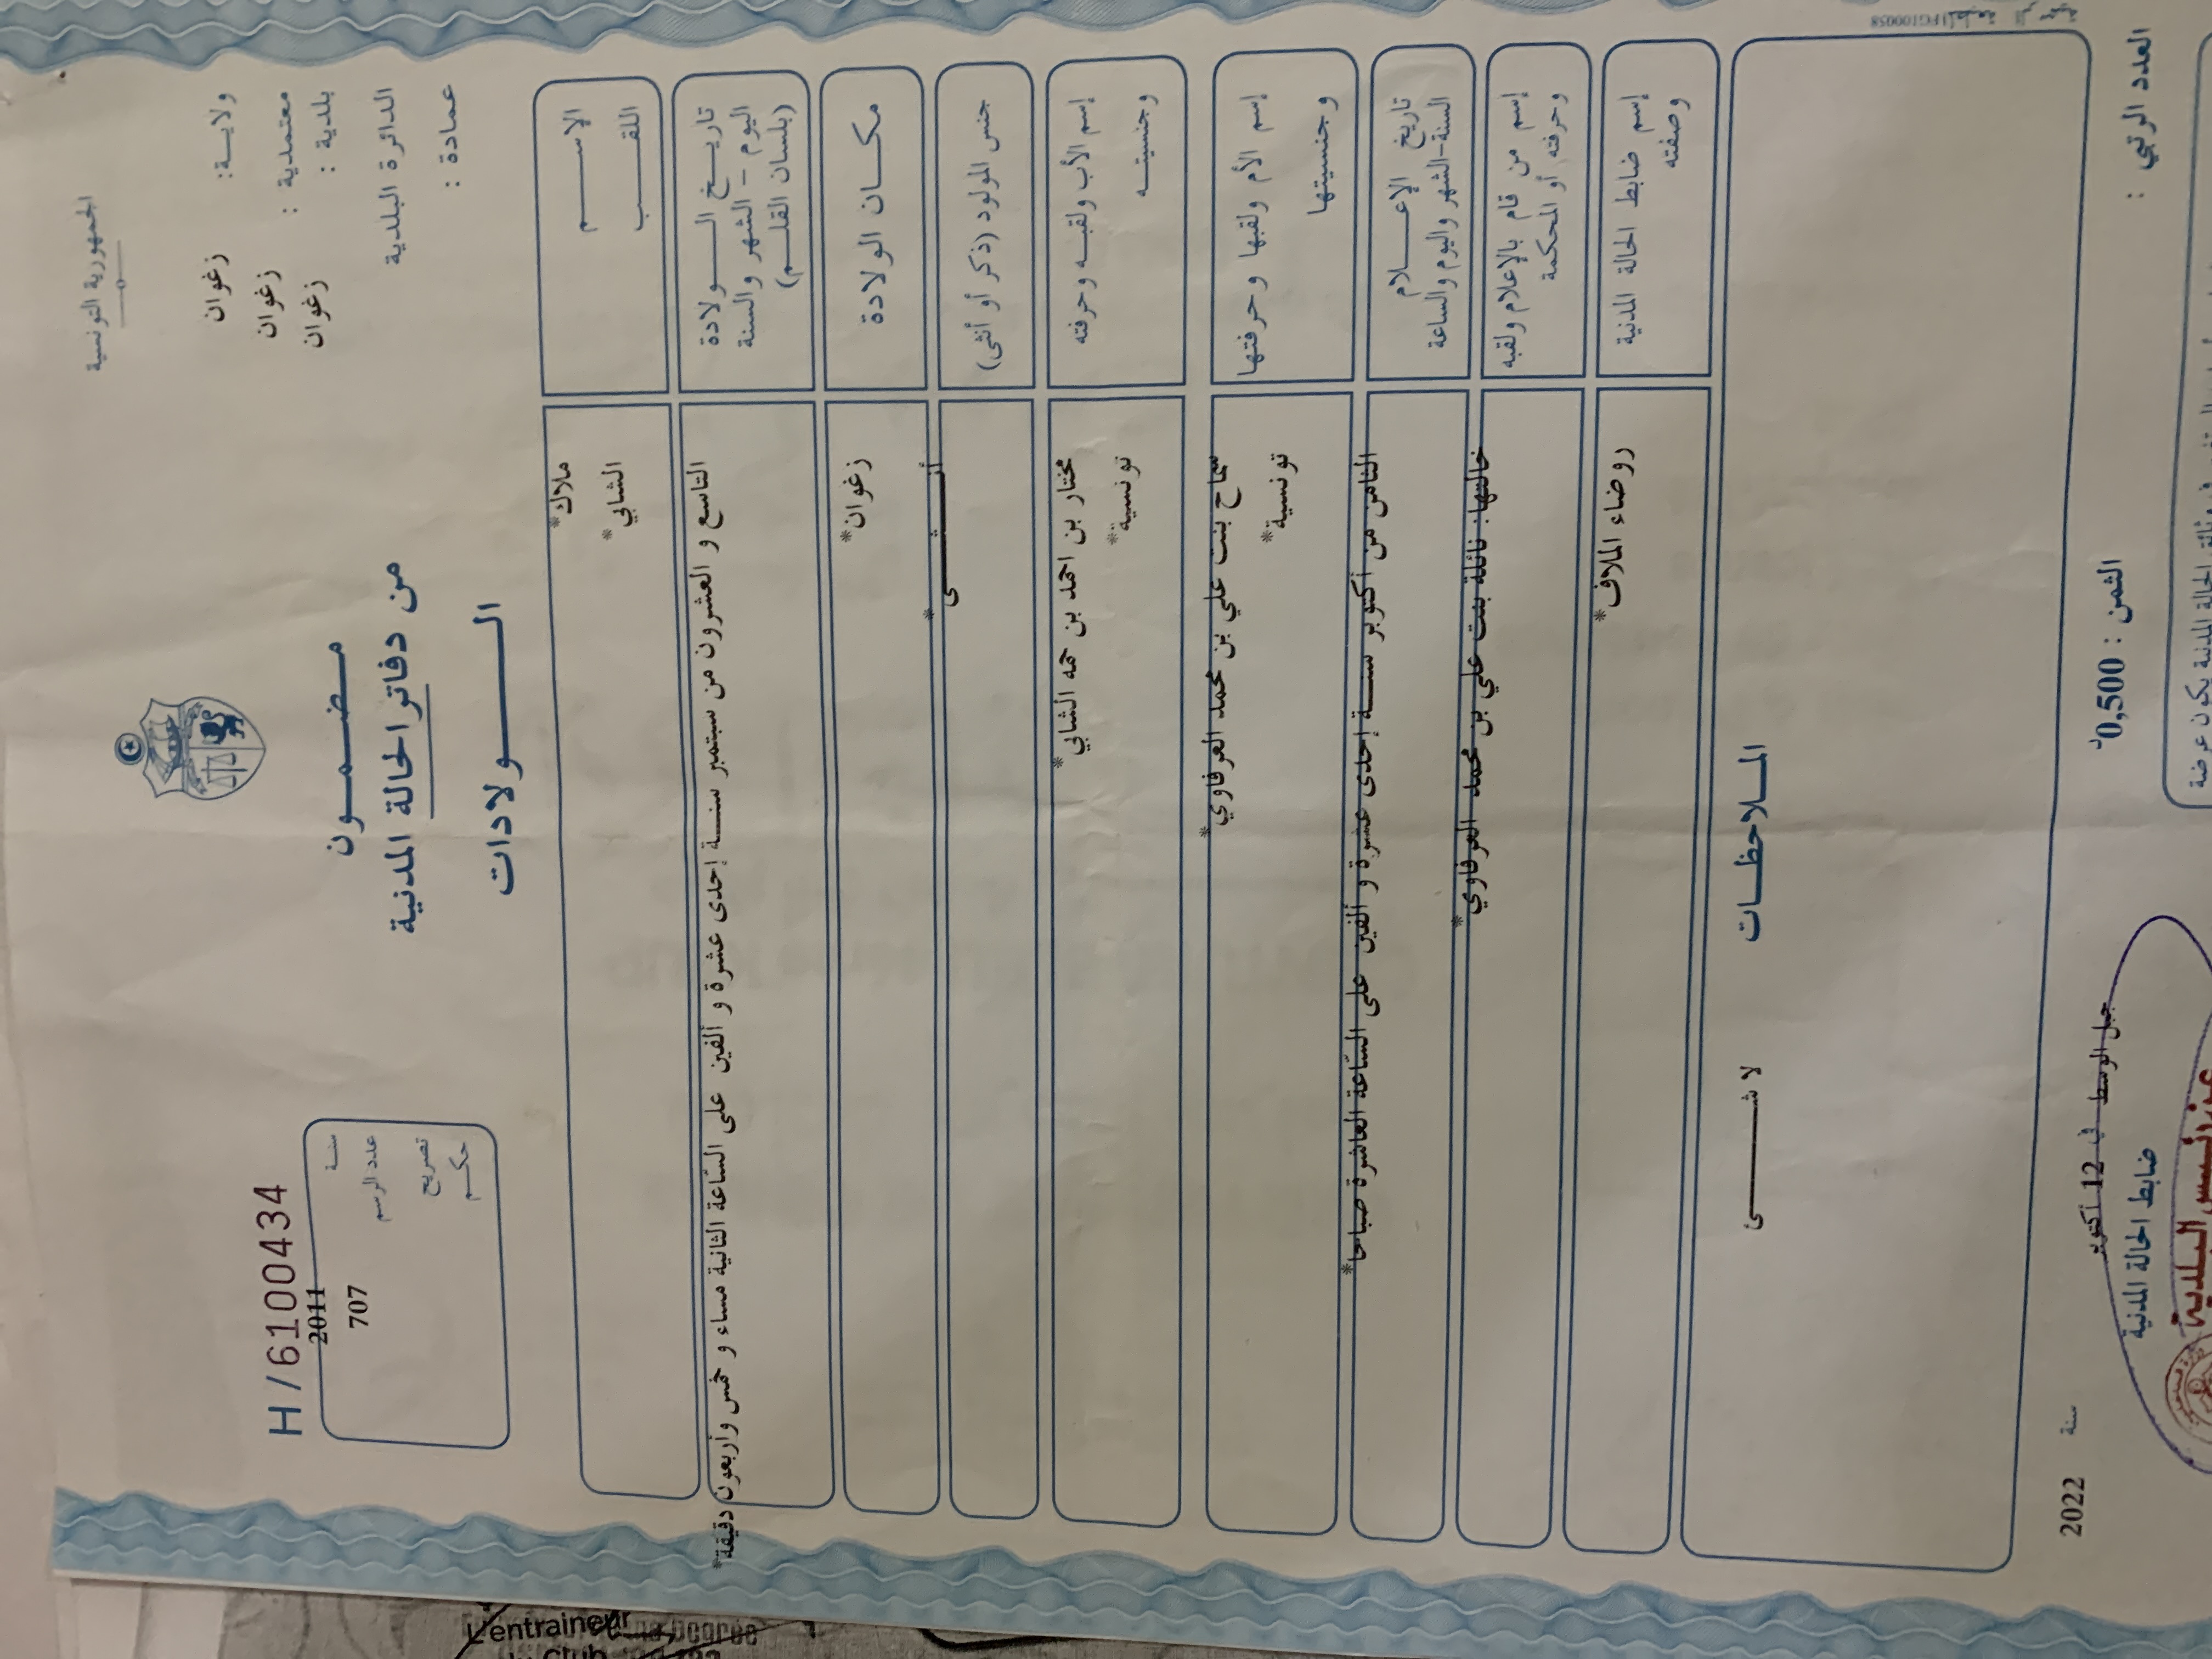 الجمهورية التونسية
ولاية: زغوان
معتمدية : زغوان
بلدية : زغوان
الدائرة البلدية
عمادة :
مضمون
من دفاتر الحالة المدنية
الولادات
H/6100434
سنة 2011
عدد الرسم 707
تصريح
حكم
الإسم ملاك*
اللقب الشابي*
تاريخ الولادة
اليوم - الشهر والسنة
(بلسان القلم)
التاسع و العشرون من سبتمبر سنة إحدى عشرة و ألفين على السّاعة الثانية مساء و خمس وأربعون دقيقة*
مكان الولادة زغوان*
جنس المولود (ذكر أو أنثى) أنثى*
إسم الأب ولقبه وحرفته مختار بن احمد بن حمه الشابي*
وجنسيته تونسية*
إسم الأم ولقبها وحرفتها سماح بنت علي بن محمد العرفاوي*
وجنسيتها تونسية*
تاريخ الإعلام
السنة-الشهر واليوم والساعة
الثامن من أكتوبر سنة إحدى عشرة و ألفين على السّاعة العاشرة صباحا*
إسم من قام بالإعلام ولقبه
وحرفته أو المحكمة
خالتها: نائلة بنت علي بن محمد العرفاوي*
إسم ضابط الحالة المدنية
وصفته
روضاء الملاف*
الملاحظات
لا شئ
جبل الوسط في 12 أكتوبر سنة 2022
العدد الرتبي :
الثمن : 0,500د
ضابط الحالة المدنية
الحالة المدنية يكون عرضة
L'entraineur